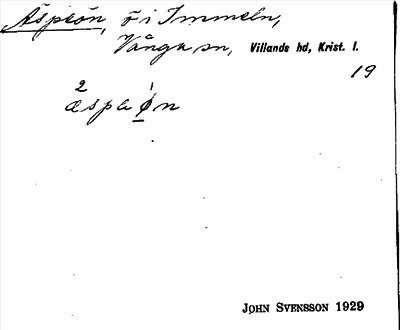 Äspeön, ö i Immeln,
Vånga sn, Villands hd, Krist. l.
19
2 1
æspəøn
JOHN SVENSSON 1929